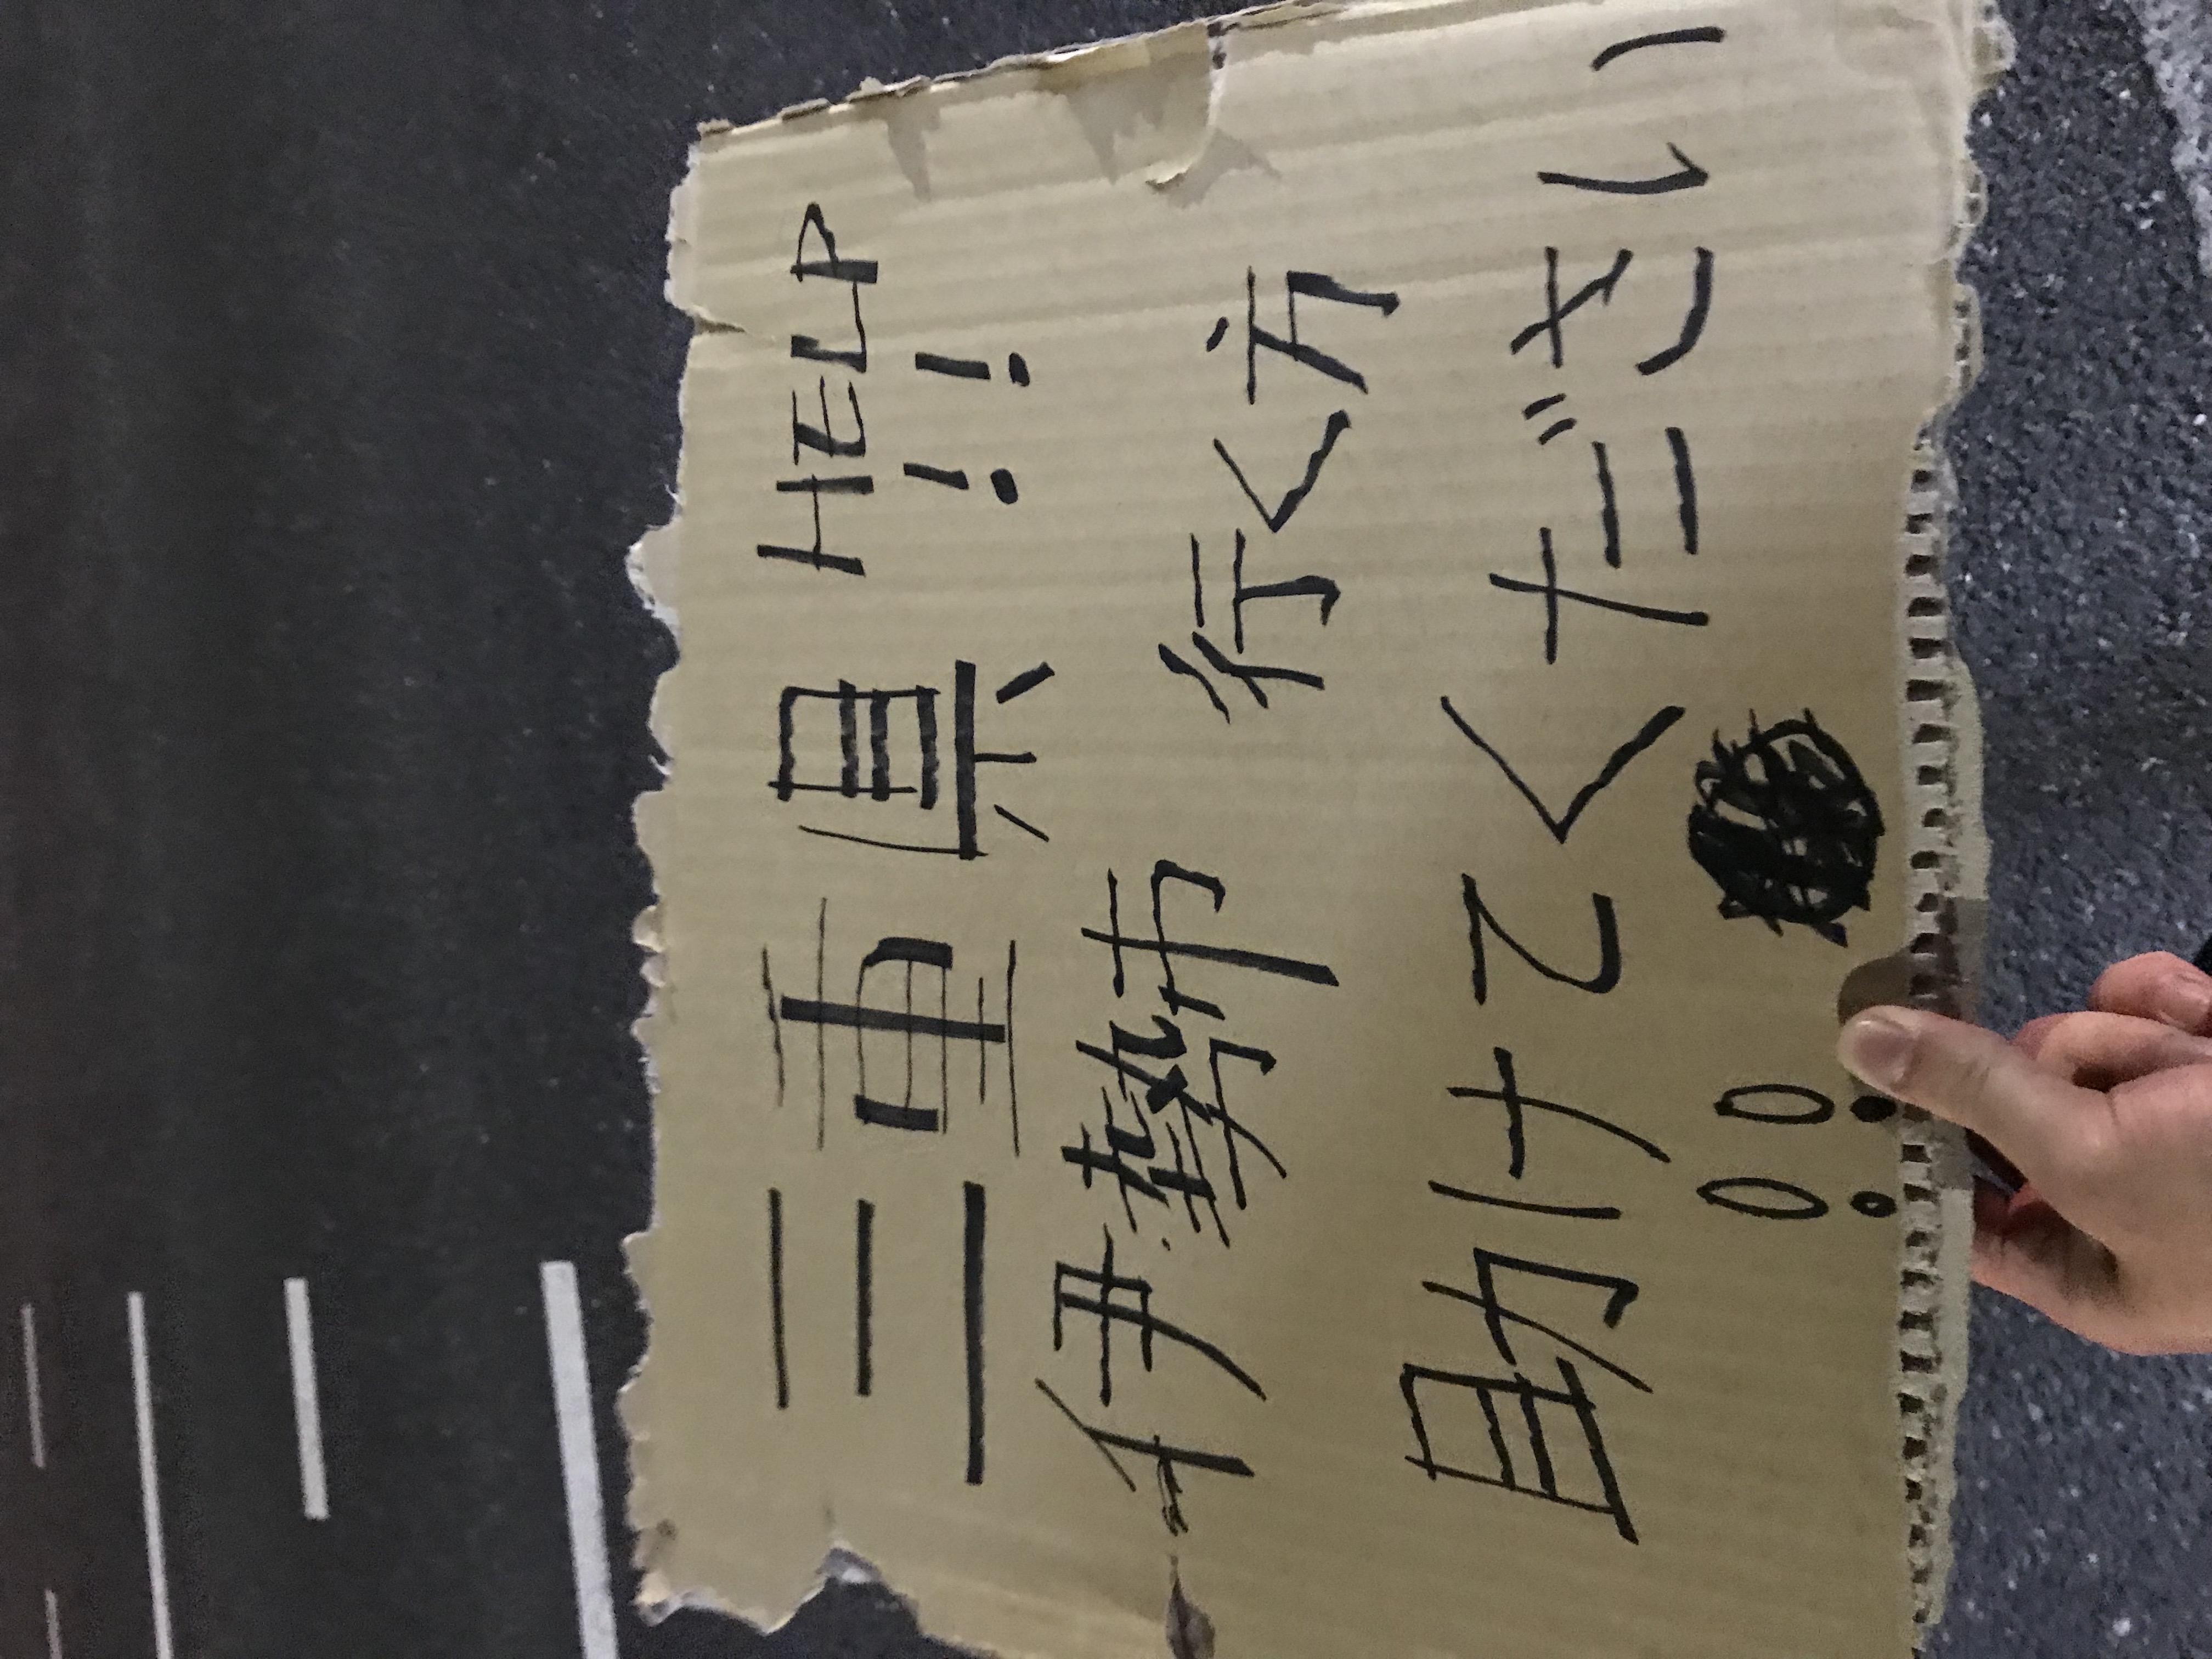 三重県 HELP
!!
伊勢市 行く方
助けてください
!!